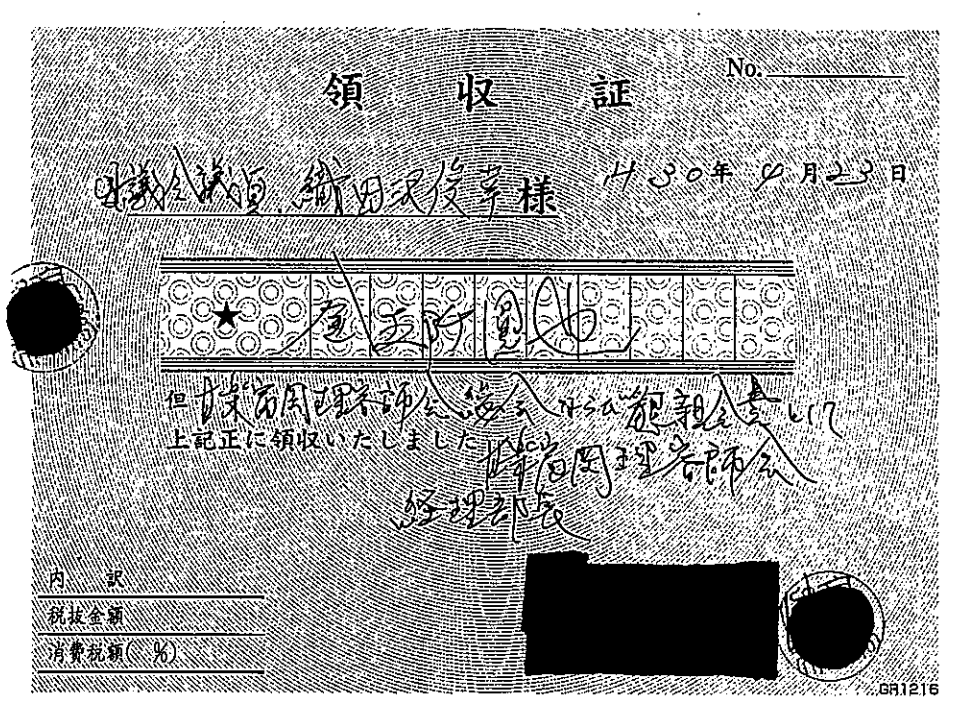 領収証
No.
県議会議員 織田沢俊幸様
H30年4月23日
★ 金五阡圓也
但 甘楽富岡理容師会総会ならびに懇親会費として
上記正に領収いたしました
甘楽富岡理容師会
経理部長
内訳
税抜金額
消費税額( %)
GR1216